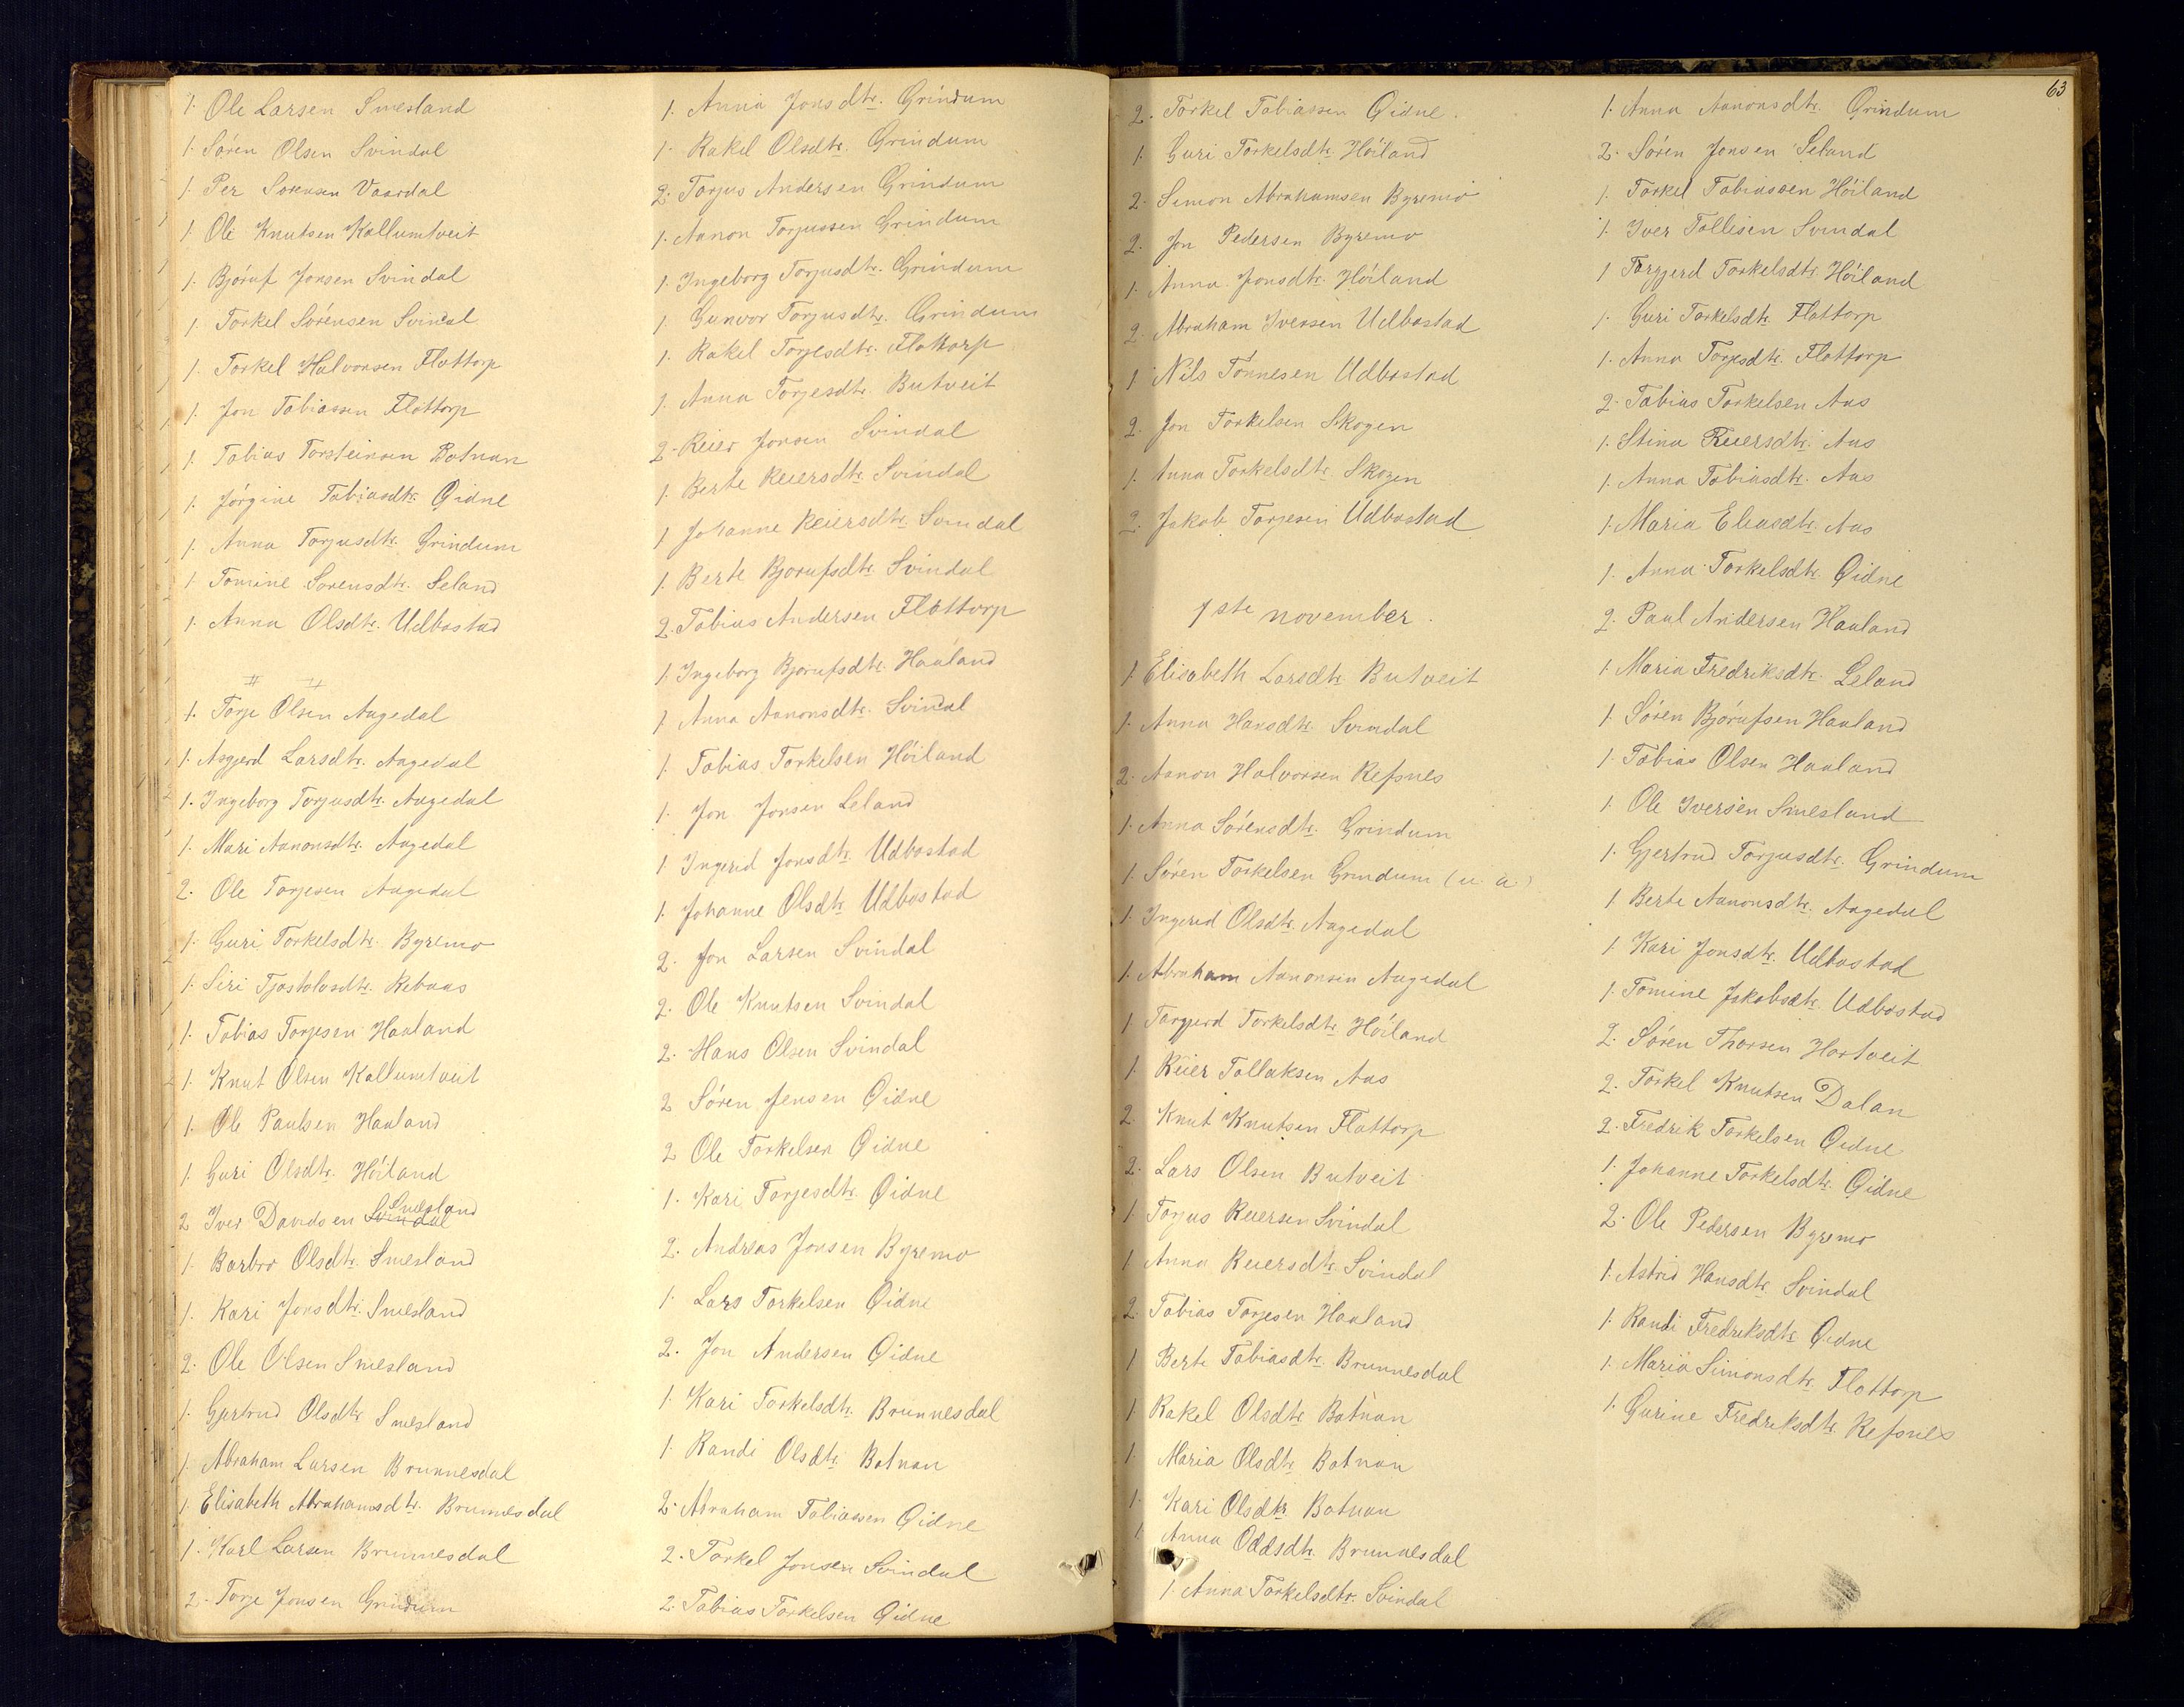 1. Ole Larsen Smesland
1. Sören Olsen Svindal
1. Per Sørensen Vaardal
1. Ole Knutsen Kallumtveit
1. Björuf Jonsen Svindal
1. Torkel Sörensen Svindal
1. Torkel Halvorsen Flottorp
1. Jon Tobiassen Flottorp
1. Tobias Torsteinsen Botnan
1. Jörgine Tobiasdtr. Øidne
1. Anna Torjusdtr. Grindum
1. Tomine Sørensdtr. Seland
1. Anna Olsdtr. Udbostad
1. Torje Olsen Aagedal
1. Asgjerd Larsdtr. Aagedal
1. Ingeborg Torjusdtr. Aagedal
1. Mari Aanonsdtr. Aagedal
2. Ole Torjesen Aagedal
1. Guri Torkelsdtr. Byremo
1. Siri Tjostolvsdtr.
1. Tobias Torjesen Haaland
1. Knut Olsen Kallumtveit
1. Ole Paulsen Haaland
1. Guri Olsdtr. Höiland
2 Iver Davidsen Svindal Smesland
1. Barbro Olsdtr. Smesland
1. Kari Jonsdtr. Smesland
2. Ole Olsen Smesland
1. Gjertrud Olsdtr. Smesland
1. Abraham Larsen Brunnesdal
1. Elisabeth Abrahamsdtr. Brunnesdal
1. Karl Larsen Brunnesdal
2. Torje Jonsen Grindum
1. Anna Jonsdtr. Grindum
1. Rakel Olsdtr. Grindum
2. Torjus Andersen Grindum
1. Aanon Torjussen Grindum
1. Ingeborg Torjusdtr. Grindum
1 Gunvor Torjusdtr. Grindum
1. Rakel Torjesdtr. Flottorp
1. Anna Torjesdtr. Butveit
2. Reier Jonsen Svindal
1. Berte Reiersdtr. Svindal
1 Johanne Reiersdtr. Svindal
1. Berte Bjorufsdtr. Svindal
2. Tobias Andersen Flottorp
1. Ingeborg Bjorufsdtr. Haaland
1 Anna Aanonsdtr. Svindal
1. Tobias Torkelsen Höiland
1. Jon Jonsen Leland
1 Ingerid Jonsdtr. Udbostad
1. Johanne Olsdtr. Udbostad
2. Jon Larsen Svindal
2. Ole Knutsen Svindal
2. Hans Olsen Svindal
2 Sören Jensen Øidne
2 Ole Torkelsen Øidne
1. Kari Torjesdtr. Øidne
2. Andreas Jonsen Byremo
1. Lars Torkelsen Øidne
2. Jon Andersen Øidne
1. Kari Torkelsdtr. Brunnesdal
1. Randi Olsdtr. Botnan
2. Abraham Tobiassen Øidne
2. Torkel Jonsen Svindal
2. Tobias Torkelsen Øidne
63
2. Torkel Tobiassen Øidne.
1. Guri Torkelsdtr. Höiland
2. Simon Abrahamsen Byremo
2. Jon Pedersen Byremo
1. Anna Jonsdtr. Höiland
2. Abraham Iversen Udbostad
1 Nils Tönnesen Udbostad
2. Jon Torkelsen Skogen
1. Anna Torkelsdtr. Skogen
2. Jakob Torjesen Udbostad
1ste november.
1 Elisabeth Larsdtr. Butveit
1. Anna Hansdtr. Svindal
2. Aanon Halvorsen Refsnes
1. Anna Sörensdtr. Grindum
1. Sören Torkelsen Grindum (u. a.)
1. Ingerid Olsdtr. Aagedal
1. Abraham Aanonsen Aagedal
1 Torgjerd Torkelsdtr. Höiland
1. Reier Tollaksen Aas
2. Knut Knutsen Flottorp
2. Lars Olsen Butveit
1 Torjus Reiersen Svindal
1 Anna Reiersdtr. Svindal
2. Tobias Torjesen Haaland
1 Berte Tobiasdtr. Brunnesdal
1 Rakel Olsdtr. Botnan
1. Maria Olsdtr. Botnan
1. Kari Olsdtr. Botnan
1 Anna Oddsdtr. Brunnesdal
1. Anna Torkelsdtr. Svindal
1. Anna Aanonsdtr. Grindum
2. Sören Jonsen Seland
1. Torkel Tobiassen Höiland
1. Iver Tollisen Svindal
1 Torgjerd Torkelsdtr. Höiland
1. Guri Torkelsdtr. Flottorp
1. Anna Torjesdtr. Flottorp
2. Tobias Torkelsen Aas
1. Stina Reiersdtr. Aas
1. Anna Tobiasdtr. Aas
1. Maria Eliasdtr. Aas
1. Anna Torkelsdtr. Øidne
2. Paul Andersen Haaland
1. Maria Fredriksdtr. Leland
1. Sören Bjórufsen Haaland
1. Tobias Olsen Haaland
1. Ole Iversen Smesland
1. Gjertrud Torjusdtr. Grindum
1 Berte Aanonsdtr. Aagedal
1 Kari Jonsdtr. Udbostad
1. Tomine Jakobsdtr. Udbostad
2. Sören Thorsen Hortveit
2. Torkel Knutsen Dalan
2. Fredrik Torkelsen Øidne
1. Johanne Torkelsdtr. Øidne
2. Ole Pedersen Byremo
1. Astrid Hansdtr. Svindal
1. Randi Fredriksdtr. Øidne
1. Maria Simonsdtr. Flottorp
1. Gurine Fredriksdtr. Refsnes